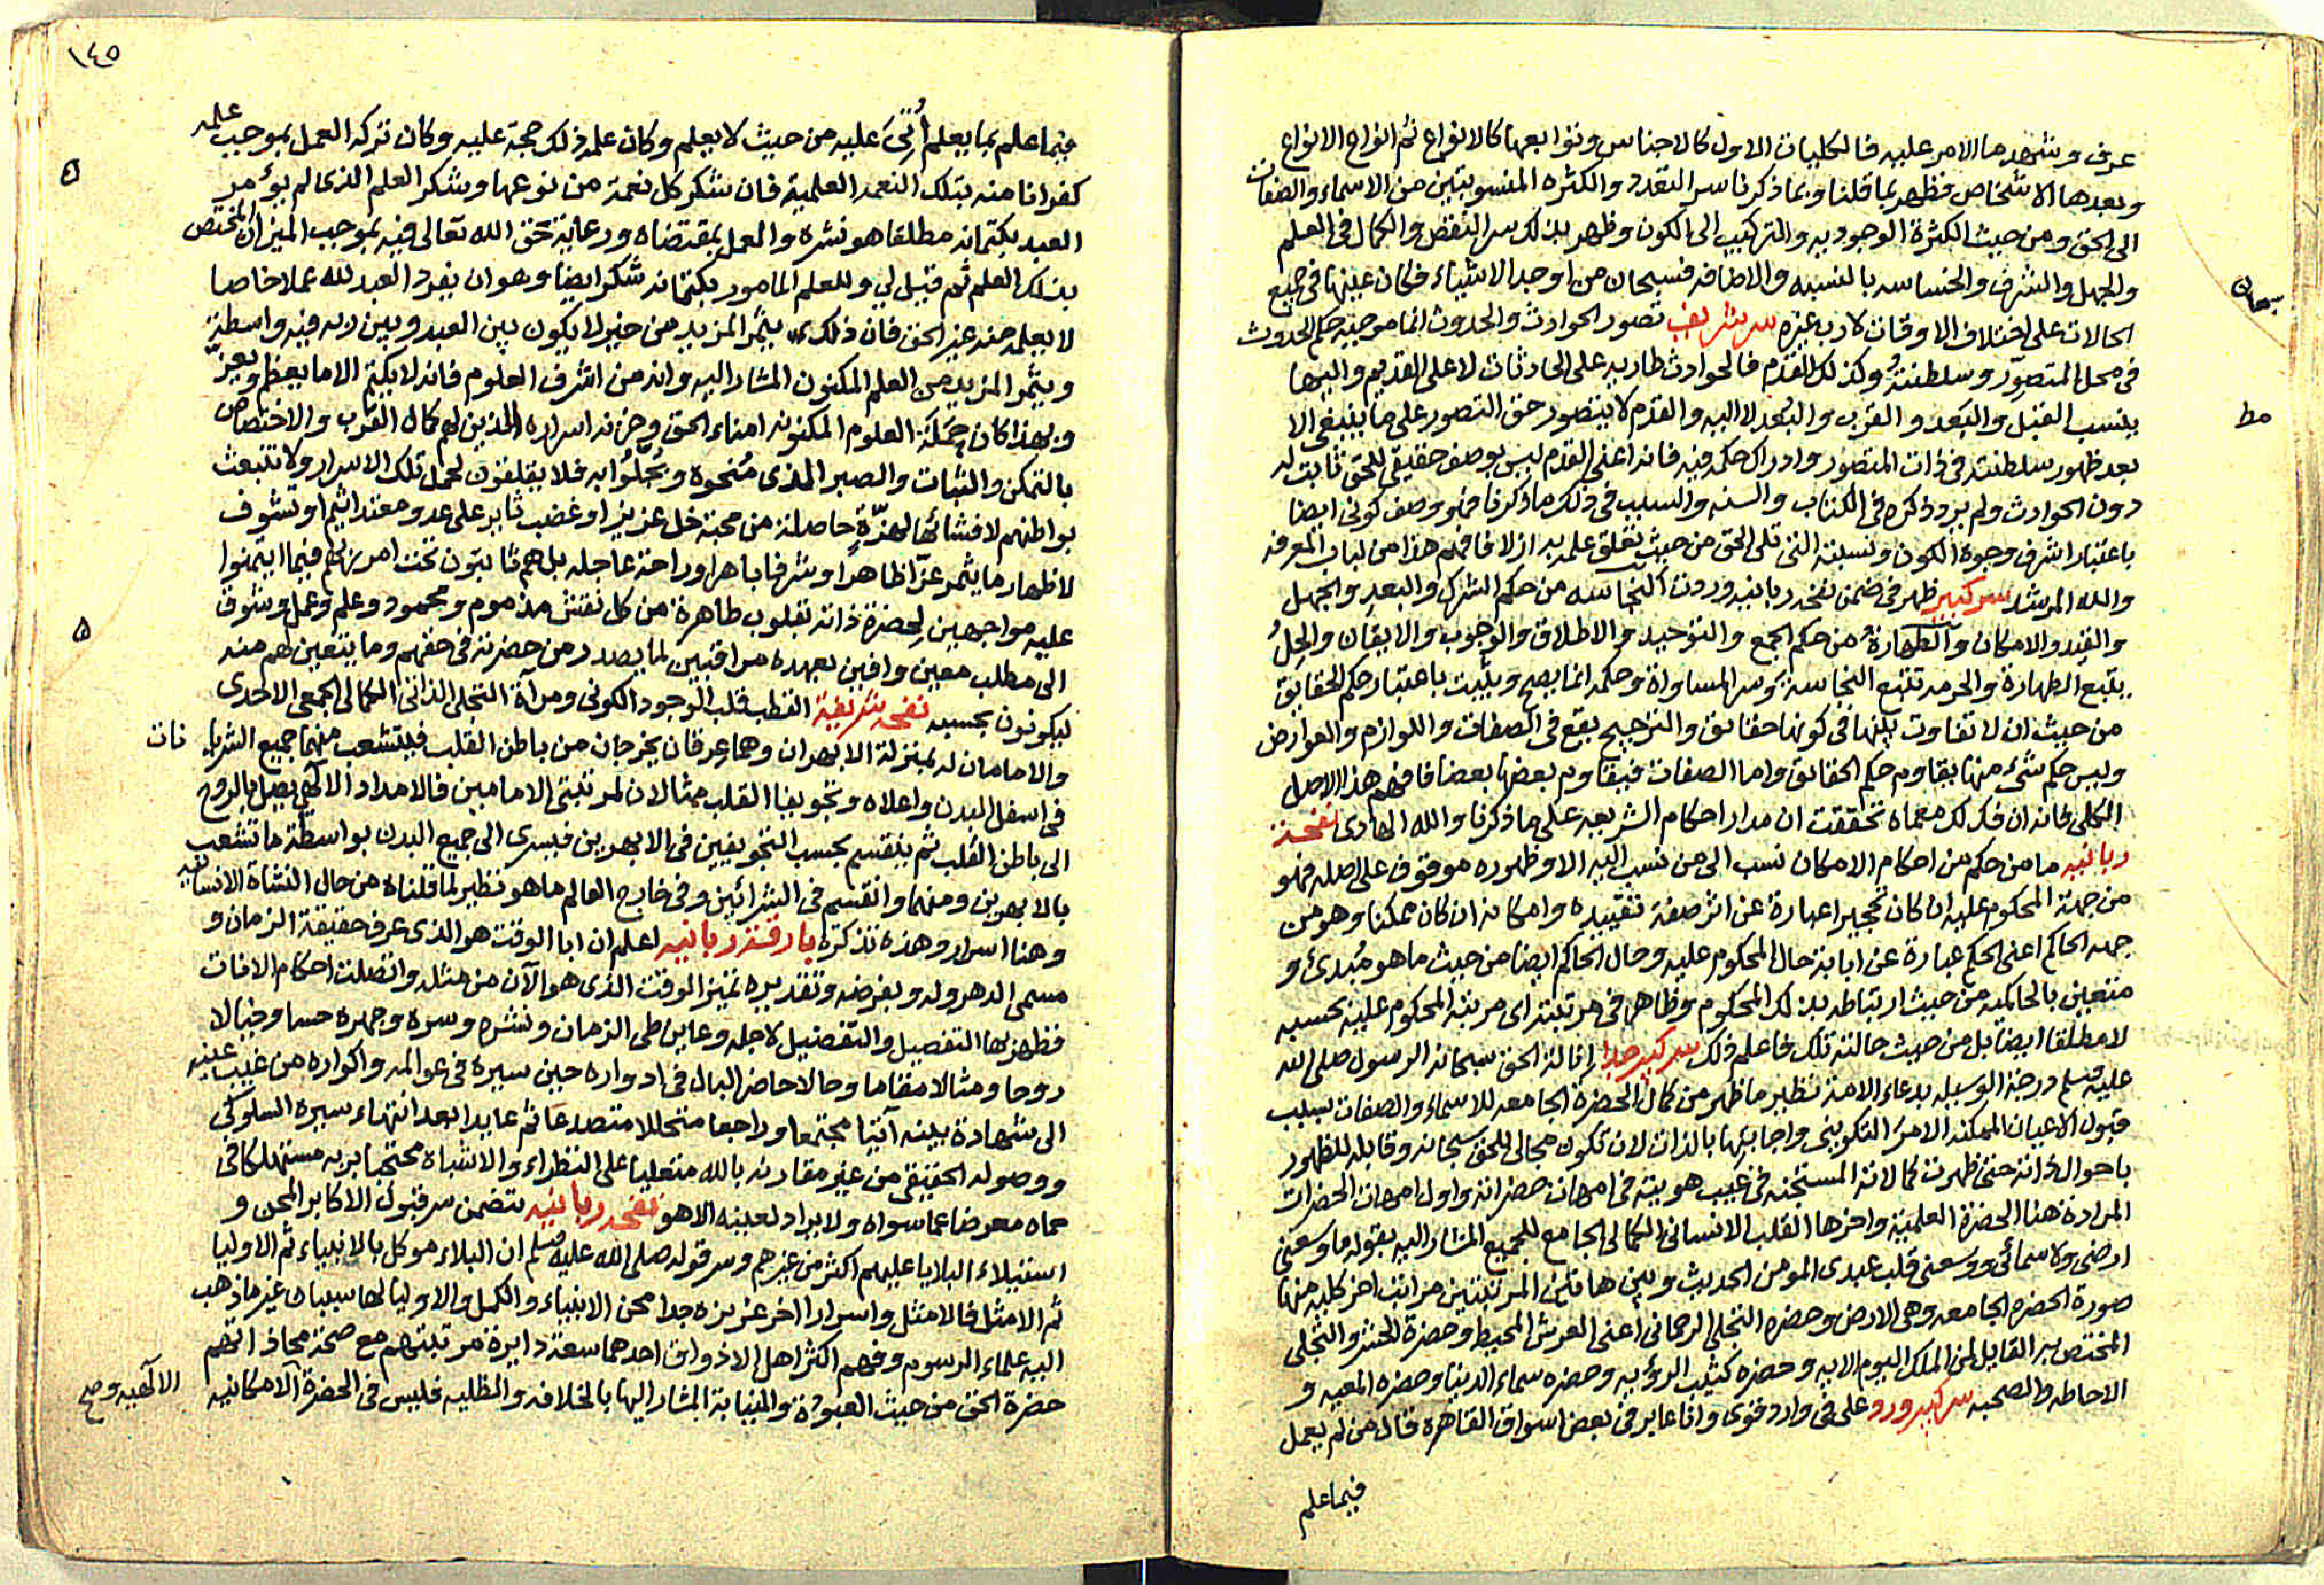 عرف وشهد ما الامر عليه فالكليات الاول كالاجناس وتوابعها كالانواع ثم انواع الانواع
وبعدها الاشخاص فظهر بما قلنا وبما ذكرنا سر التعدد والكثره المنسوبتين من الاسماء والصفات
الى الحق ومن حيث الكثرة الوجوديه والتركيب الى الكون وظهر بذلك سر النقص والكمال فى العلم
والجهل والشرف والخساسه بالنسبه والاضافه فسبحان من اوجد الاشياء فكان عينها فى جميع
سبحان
الحالات على اختلاف الاوقات لا رب غيره سر شريف تصور الحوادث والحدوث انما موجبه حكم الحدوث
فى محل المتصور وسلطنته وكذلك القدم فالحوادث طاريه على الحادثات لا على القديم واليها
مط
ينسب القبل والبعد والقرب والبعد لا اليه والقدم لا يتصور حق التصور على ما ينبغى الا
بعد ظهور سلطنته فى ذات المتصور وادراك حكمه فيه فانه اعنى القدم ليس بوصف حقيقى للحق ثابت له
دون الحوادث ولم يرد ذكره فى الكتاب والسنه والسبب فى ذلك ما ذكرنا فهو وصف كونى ايضا
باعتبار اشرف وجوه الكون ونسبته التى تلى الحق من حيث تعلق علمه به ازلا فافهم هذا من لباب المعرفه
والله المرشد سر كبير ظهر فى ضمن نفحه ربانيه وردت النجاسه من حكم الشرك والبعد والجهل
والقيد والامكان والطهارة من حكم الجمع والتوحيد والاطلاق والوجوب والايقان والحل
يتبع الطهارة والحرمه تتبع النجاسة وسر المساواة وحكمه انما يصح ويثبت باعتبار حكم الحقايق
من حيث ان لا تفاوت بينها فى كونها حقائق والترجيح يقع فى الصفات واللوازم والعوارض
وليس حكم شىء منها يقاوم حكم الحقائق واما الصفات فيقاوم بعضها بعضا فافهم هذا الاصل
الكلى فانه ان فك لك معماه تحققت ان مدار احكام الشريعه على ما ذكرنا والله الهادى نفحة
ربانيه ما من حكم من احكام الامكان نسب الى من نسب اليه الا وظهوره موقوف على اصله فهو
من جهة المحكوم عليه ان كان تحجيرا عبارة عن اثر صفة تقييده وامكانه ان كان ممكنا وهو من
جهه الحاكم اعنى الحكم عبارة عن ابانة حال المحكوم عليه وحال الحاكم ايضا من حيث ما هو مبدئ و
متعين بالحاكميه من حيث ارتباطه بذلك المحكوم وظاهر فى مرتبته اى مرتبة المحكوم عليه بحسبه
لا مطلقا ايضا بل من حيث حالته تلك فاعلم ذلك سر كبير جدا انالة الحق سبحانه الرسول صلى الله
عليه وسلم درجة الوسيله بدعاء الامه نظير ما ظهر من كمال الحضرة الجامعه للاسماء والصفات بسبب
قبول الاعيان الممكنه الامر التكوينى واجابتها بالذات لان تكون مجالى للحق سبحانه وقابله للظهور
باحوال ذاته حتى ظهرت كمالاته المستجنه فى غيب هويته فى امهات حضراته واول امهات الحضرات
المراده هنا الحضرة العلمية واخرها القلب الانسانى الكمالى الجامع للجميع المشار اليه بقوله ما وسعنى
ارضى ولا سمائى ووسعنى قلب عبدى المومن الحديث وبين هاتين المرتبتين مراتب اخر كليه منها
صورة الحضرة الجامعه وهى الارض وحضره التجلى الرحمانى اعنى العرش المحيط وحضرة الحشر والتجلى
المختص به القايل لمن الملك اليوم الايه وحضره كثيب الرؤيه وحضره سماء الدنيا وحضره المعيه و
الاحاطه والصحبه سر كبير ورد على فى وارد قوى وانا عابر فى بعض اسواق القاهره قال من لم يعمل
فيما علم
١٤٥
فيما علم بما يعلم أتى عليه من حيث لا يعلم وكان علمه ذلك حجة عليه وكان تركه العمل بموجب علمه
كفرانا منه بتلك النعمه العلمية فان شكر كل نعمة من نوعها وشكر العلم الذى لم يؤمر
العبد بكتمانه مطلقا هو نشره والعمل بمقتضاه ورعاية حق الله تعالى فيه بموجب الميزان المختص
بذلك العلم ثم قيل لى وللعلم المامور بكتمانه شكر ايضا وهو ان يفرد العبد لله عملا خاصا
لا يعلمه منه غير الحق فان ذلك يثمر المزيد من خير لا يكون بين العبد وبين ربه فيه واسطة
ويثمر المزيد من العلم المكنون المشار اليه وانه من اشرف العلوم فانه لا يكتم الا ما يعظم ويعز
وبهذا كان حملة العلوم المكنونه امناء الحق وخزنه اسراره الذين لهم كمال القرب والاختصاص
بالتمكن والثبات والصبر الذى منحوه وحلوا به فلا يقلقون لحمل تلك الاسرار ولا تنبعث
بواطنهم لافشائها لهزة حاصلة من محبة خل عزيز او غضب ثاير على عدو معتد اثيم او تشوف
لاظهار ما يثمر عزا ظاهرا وشرفا باهرا وراحة عاجله بل هم ثابتون تحت امر ربهم فيما ايتمنوا
عليه مواجهين لحضرة ذاته بقلوب طاهرة من كل نقش مذموم ومحمود وعلم وعمل وشوق
الى مطلب معين وافين بعهده مراقبين لما يصدر من حضرته فى حقهم وما يتعين لهم منه
ليكونون بحسبه نفحه شريفة القطب قلب الوجود الكونى ومرآة التجلى الذاتى الكمالى الجمعى الاحدى
والامامان له بمنزلة الابهران وهما عرقان يخرجان من باطن القلب فيتشعب منهما جميع الشريانات
فى اسفل البدن واعلاه وتجويفا القلب مثالان لمرتبتى الامامين فالامداد الالهى يصل بالروح
الى باطن القلب ثم ينقسم بحسب التجويفين فى الابهرين فيسرى الى جميع البدن بواسطة ما تشعب
بالابهرين ومنهما وانقسم فى الشرائين وفى خارج العالم ما هو نظير لما قلناه من حال النشاة الانسانيه
وهنا اسرار وهذه تذكرة بارقة ربانيه اعلم ان ابا الوقت هو الذى عرف حقيقة الزمان و
مسمى الدهر وله وبفرضه وتقديره تميز الوقت الذى هو الآن من مثله واتصلت احكام الانات
فظهر بها التفصيل والتفضيل لاجله وعاين طى الزمان ونشره وسره وجهره حسا وخيالا
روحا ومثالا مقاما وحالا حاضر البال فى ادواره حين سيره فى عوالمه واكواره من غيب عينه
الى شهادة بينه آتيا مجتمعا وراجعا متحللا متصدعا ثم عايدا بعد انتهاء سيره السلوكى
ووصوله الحقيقى من غير مقارنه بالله متعليا على النظراء والاشباه محتجبا بربه مستهلكا فى
حماه معرضا عما سواه ولا يراد لعينه الا هو نفحه ربانيه تتضمن سر قبول الاكابر المحن و
استيلاء البلايا عليهم اكثر من غيرهم وسر قوله صلى الله عليه وسلم ان البلاء موكل بالانبياء ثم الاوليا
ثم الامثل فالامثل واسرارا اخر عزيزه جدا محن الانبياء والكمل والاوليا لها سببان غير ما ذهب
اليه علماء الرسوم وفهم اكثر اهل الاذواق احدهما سعة دايرة مرتبتهم مع صحة محاذاتهم
حضرة الحق من حيث العبودة والنيابة المشار اليها بالخلافه والظليه فليس فى الحضرة الامكانيه
الالهيه وصح